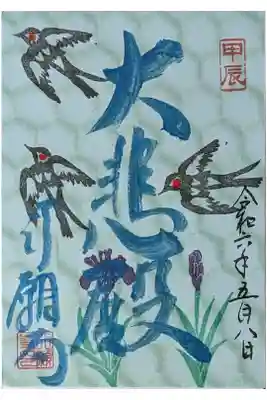 甲辰
令和六年五月八日
大悲殿
行願寺